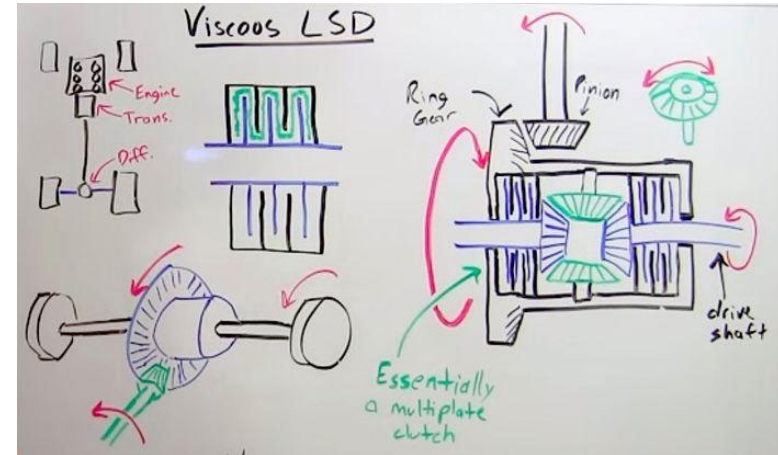 Viscous LSD
Engine
Trans.
Diff.
Ring
Gear
Pinion
drive
shaft
Essentially
a multiplate
clutch